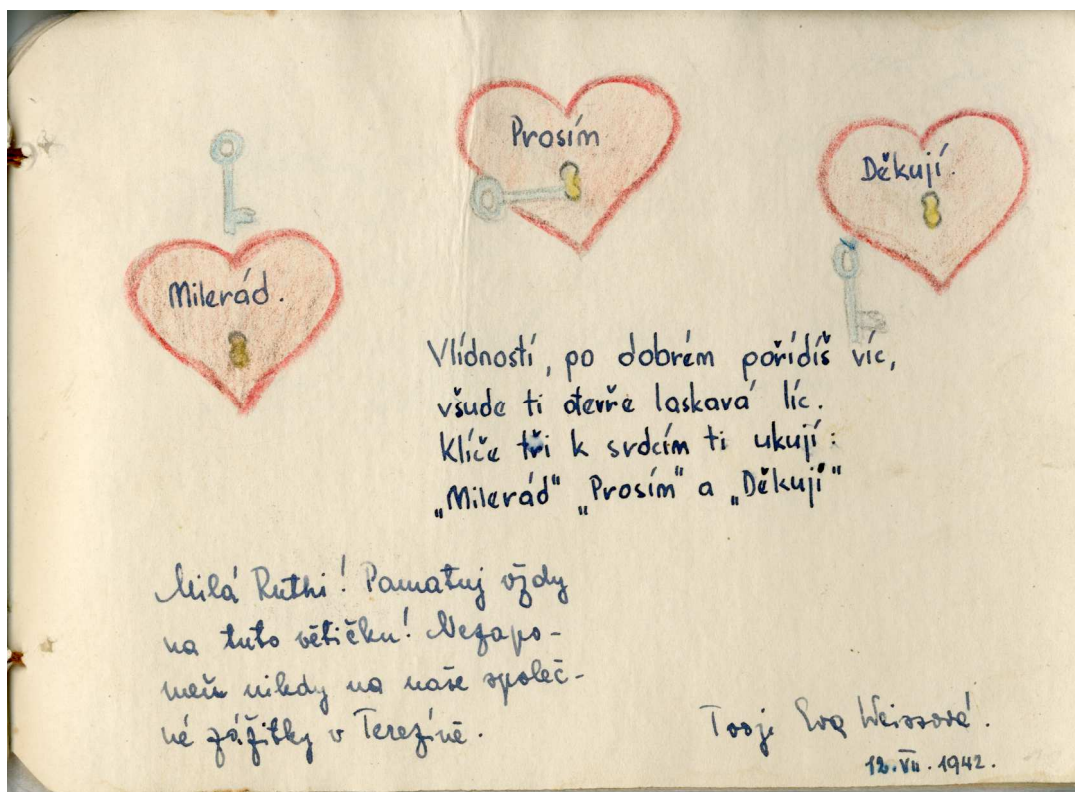 Prosím
Děkují.
Milerád.
Vlídností, po dobrém pořídíš víc,
všude ti otevře laskavá líc.
Klíče tři k srdcím ti ukují:
„Milerád" „Prosím" a „Děkují"
Milá Ruthi! Pamatuj vždy
na tuto větičku! Nezapo-
meň nikdy na naše společ-
né zážitky v Terezíně.
Tvoje Eva Weissová.
12. VII. 1942.